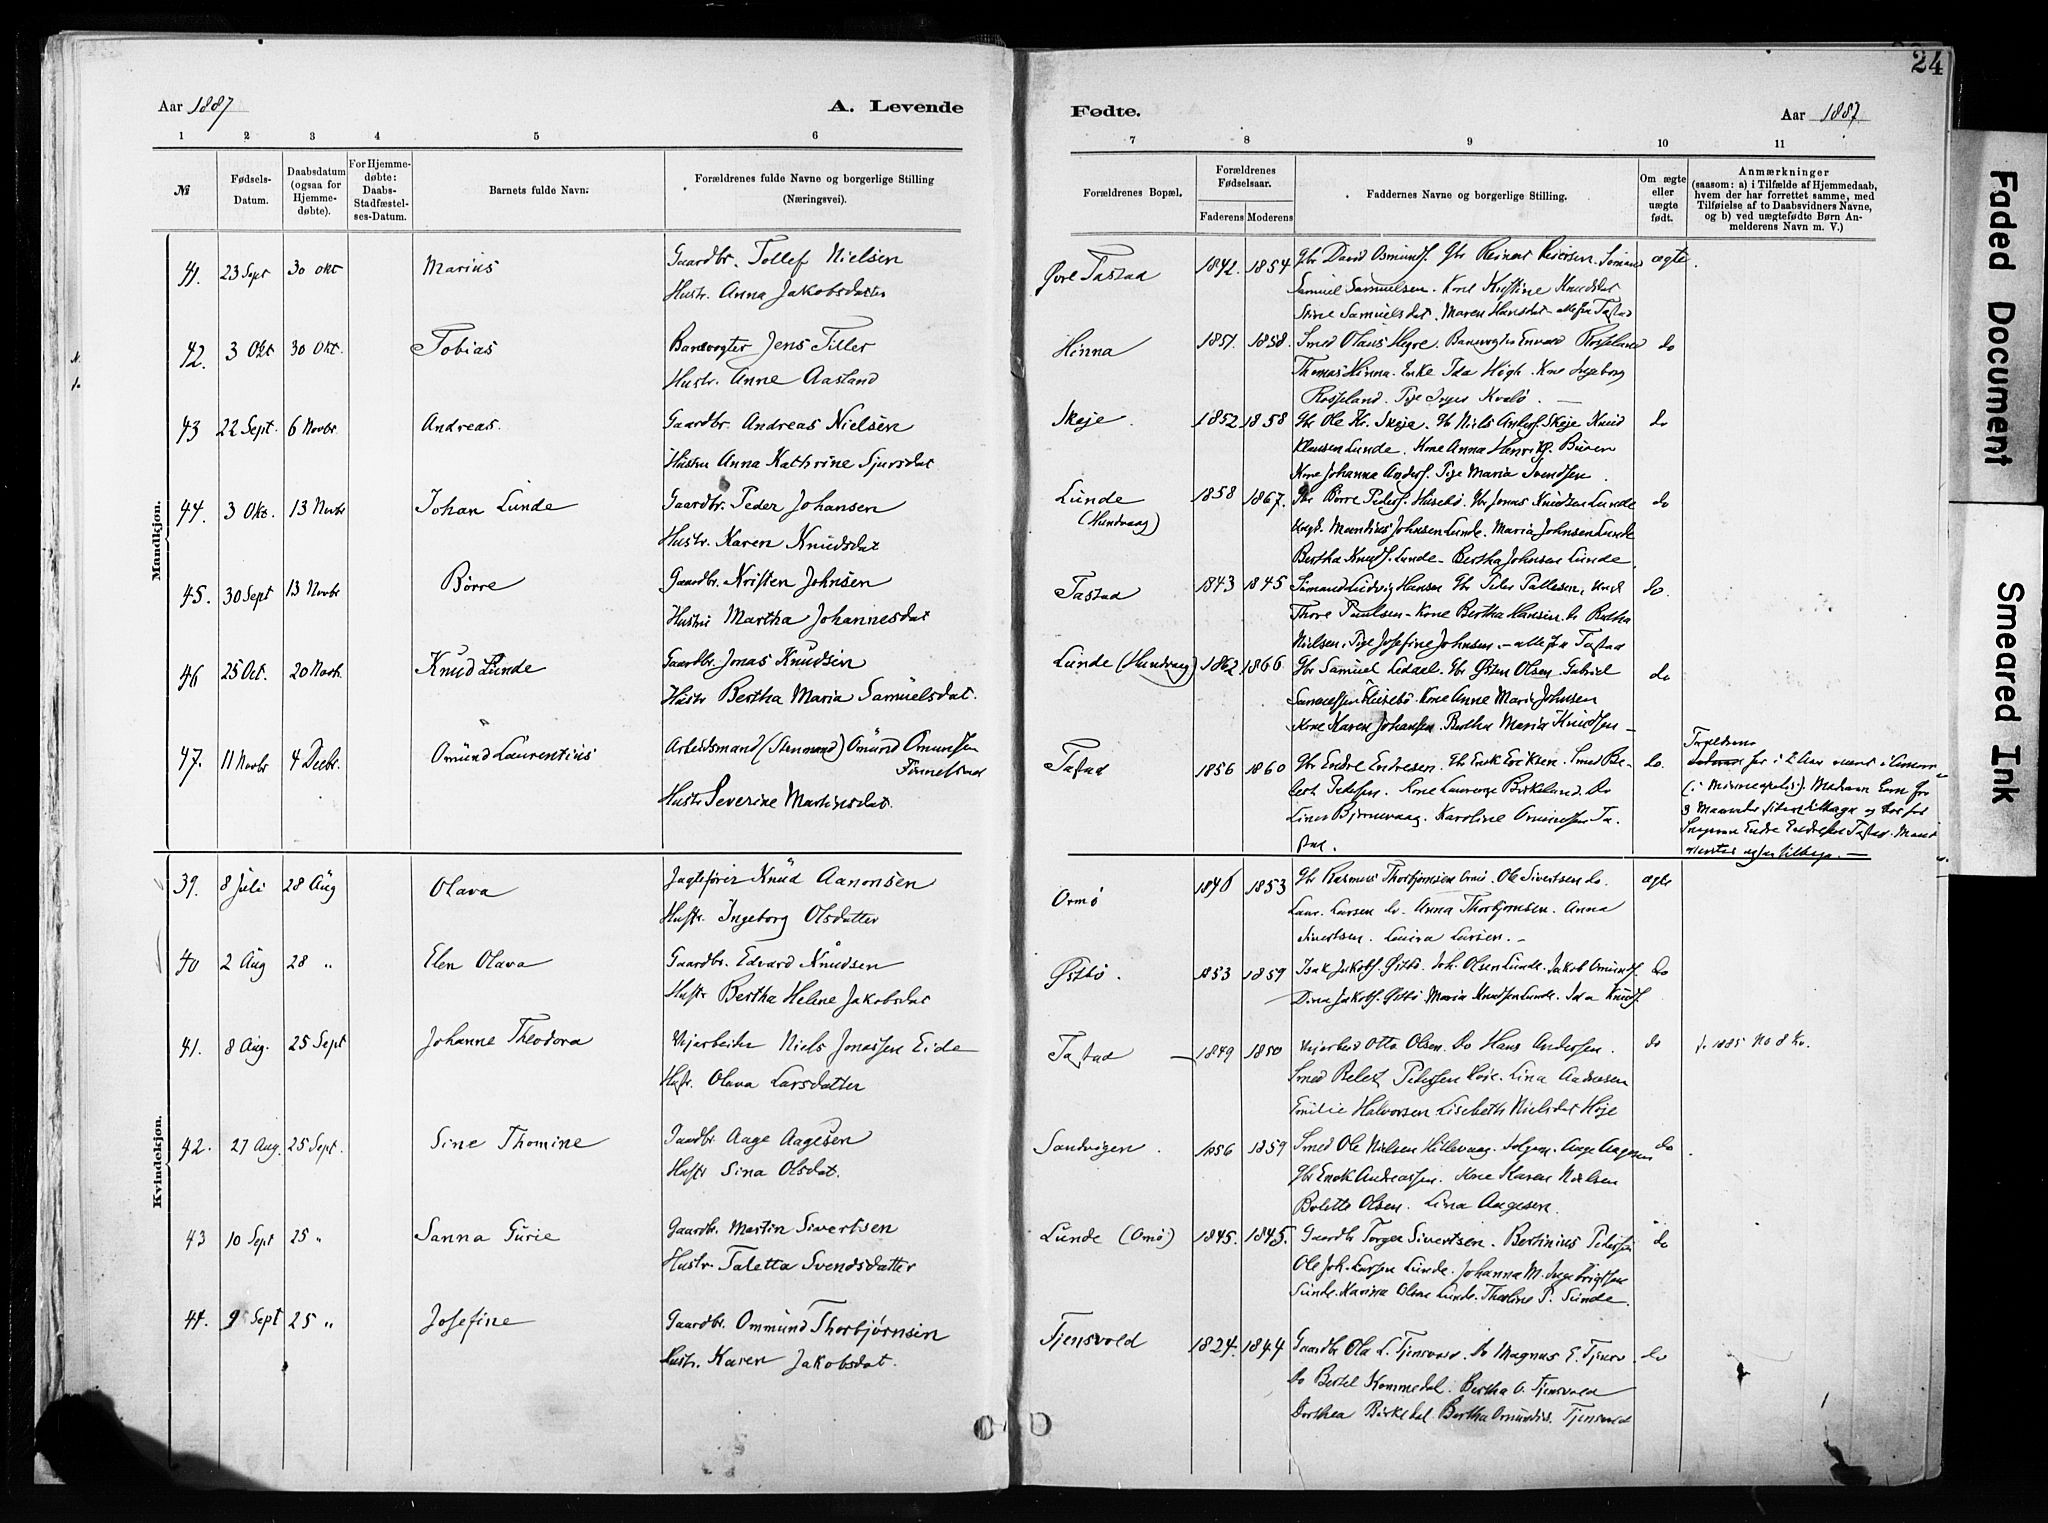 24
Aar 1887
A. Levende
Fødte.
Aar 1887.
1 2 3 4 5 6 7 8 9 10 11
№
Fødsels-Datum.
Daabsdatum (ogsaa for Hjemmedøbte).
For Hjemmedøbte: Daabs-Stadfæstelses-Datum.
Barnets fulde Navn.
Forældrenes fulde Navne og borgerlige Stilling (Næringsvei).
Forældrenes Bopæl.
Forældrenes Fødselsaar.
Faderens Moderens
Faddernes Navne og borgerlige Stilling.
Om ægte eller uægte født.
Anmærkninger
(saasom: a) i Tilfælde af Hjemmedaab,
hvem der har forrettet samme, med
Tilføielse af to Daabsvidners Navne,
og b) ved uægtefødte Børn An-
melderens Navn m. V.)
Mandkjøn.
41. 23 Sept 30 Okt Marius Gaardbr. Tollef Nielsen Øvre Tastad 1842. 1854 Gbr David Osmunds. Gbr Reinar Reiersen. Sømand ægte.
Hustr. Anna Jakobsdatter Samuel Samuelsen. Kone Kristine Knudsdat
Stine Samuelsdat. Maren Hansdat - alle fra Tastad
42. 3 Okt 30 Okt. Tobias Banevogter Jens Tiller Hinna 1851. 1858. Smed Olaus Hegre. Banevogter Rosseland do
Hustr. Anne Aasland Thomas Hinna. Enke Ida Høgh. Kone Ingeborg
Rosseland. Pige Inger Kvalø.
43 22 Sept. 6 Novbr. Andreas. Gaardbr. Andreas Nielsen Skeje. 1852 1858 Gbr Ole Kr. Skeje. Gb Niels Anders. Skeje Knud do
Hustru Anna Kathrine Sjursdat Klausen Lunde. Kone Anna Henriks. Buøen
Kone Johanna Anders. Pige Maria Svendsen.
44. 3 Okt. 13 Novbr Johan Lunde Gaardbr. Peder Johansen Lunde (Hundvaag) 1858 1867. Gbr Børre Peders. Husebø. Gbr Jonas Knudsen Lunde do
Hustr. Karen Knudsdat Ungk. Mandius Johnsen Lunde. Maria Johnsen Lunde
Bertha Knuds. Lunde - Bertha Johnsen Lunde.
45. 30 Sept 13 Novbr Børre Gaardbr. Kristen Johnsen Tastad 1843 1845 Sømand Ludvig Hansen Gbr Peder Pallesen, Ungk do.
Hustru Martha Johannesdat Thore Paulsen - Kone Bertha Hansen do Bertha
Nielsen. Pige Josefine Johnsen. - alle fra Tastad
46 25 Oct. 20 Novb. Knud Lunde Gaardbr. Jonas Knudsen Lunde (Hundvaag) 1862 1866 Gbr Samuel Ledaal. Gbr Østen Olsen. Gabriel do
Hustr Bertha Maria Samuelsdat. Samuelsen Husebø. Kone Anne Marie Johnsen
Kone Karen Johansen. Bertha Maria Knudsen -
47. 11 Novbr 4 Decbr. Omund Laurentius Arbeidsmand (Stenmand) Omund Omundsen Tastad 1856 1860 Gbr Endre Endresen. Gbr Enok Eriksen. Smed Be- do.
Hustr Severine Martinsdat. lest Pedersen. Kone Laurense Birkeland. Do
Lina Bjørnevaag. Karoline Omundsen Ta-
stad.
Forældrene
har i 2 Aar været i Amerika
(i Minneapolis).
3 Maaneder siden tilbage og bor hos
Endre Endresen Tastad. Mand
tilbage. -
Kvindekjøn.
39. 8 Juli 28 Aug Olava Jagtefører Knud Aanonsen Ormø 1846 1853 Gbr Rasmus Thorbjørnsen Ormø. Ole Sivertsen do. ægte
Hustr. Ingeborg Olsdatter Laur. Larsen do. Anna Thorbjørnsen. Anna
Sivertsen. Laura Larsen. -
40 2 Aug 28 " Elen Olava Gaardbr. Edvard Knudsen Østbø. 1853 1859 Isak Jakobs. Østbø. Joh. Olsen Lunde. Jakob Omunds. do
Hustr Bertha Helene Jakobsdat Dina Jakobs. Østbø Maria Knudsen Lunde. Ida Knuds.
41. 8 Aug. 25 Sept Johanne Theodora Vejarbeider Niels Jonassen Eide Tastad 1849 1850 Vejarbeid Otto Olsen. Do Hans Andersen. do f. 1885 No 8 Kv.
Hustr. Olava Larsdatter Smed Belest Pedersen. Lina Andresen
Emilie Halvorsen Lisebeth Nielsdat Høje
42. 27 Aug. 25 Sept. Sine Thomine Gaardbr Aage Aagesen Sandvigen. 1856 1859 Smed Ole Nielsen Hillevaag. Aage Aagesen do
Hustr Sina Olsdat. Gbr Enok Andreassen. Kone Karen Nielsen
Bolette Olsen. Lina Aagesen.
43 10 Sept 25 " Sanna Gurie Gaardbr. Martin Sivertsen Lunde (Ormø) 1845. 1845. Gaardbr Torger Sivertsen. Bertinius Pedersen do
Hustr. Taletta Svendsdatter Ole Joh. Larsen Lunde. Johanna M. Ingebrigtsen
Lunde. Karina Olsen Lunde. Thorline P. Lunde.
44. 9 Sept 25 " Josefine Gaardbr. Ommund Thorbjørnsen Tjensvold 1824. 1844 Gaardbr Ola L. Tjensvold. Do Magnus E. Tjensv. do
Hustr. Karen Jakobsdat. Do Bertel Kommedal. Bertha O. Tjensvold
Dorthea Birkedal. Bertha Omunds. Tjensvold
Faded Document
Smeared Ink